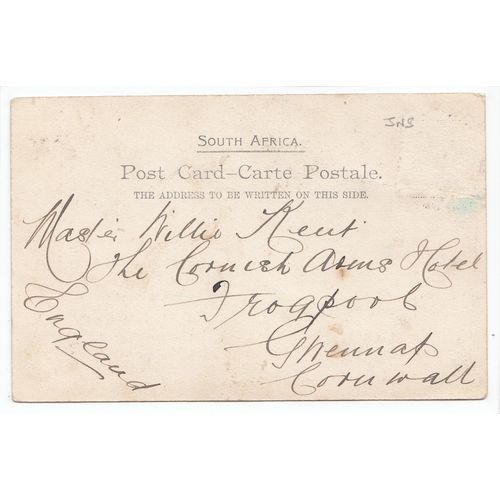 JNS
SOUTH AFRICA.
Post Card–Carte Postale.
THE ADDRESS TO BE WRITTEN ON THIS SIDE.
Master Willie Kent
The Cornish Arms Hotel
Frogpool
Gwennap
Cornwall
England